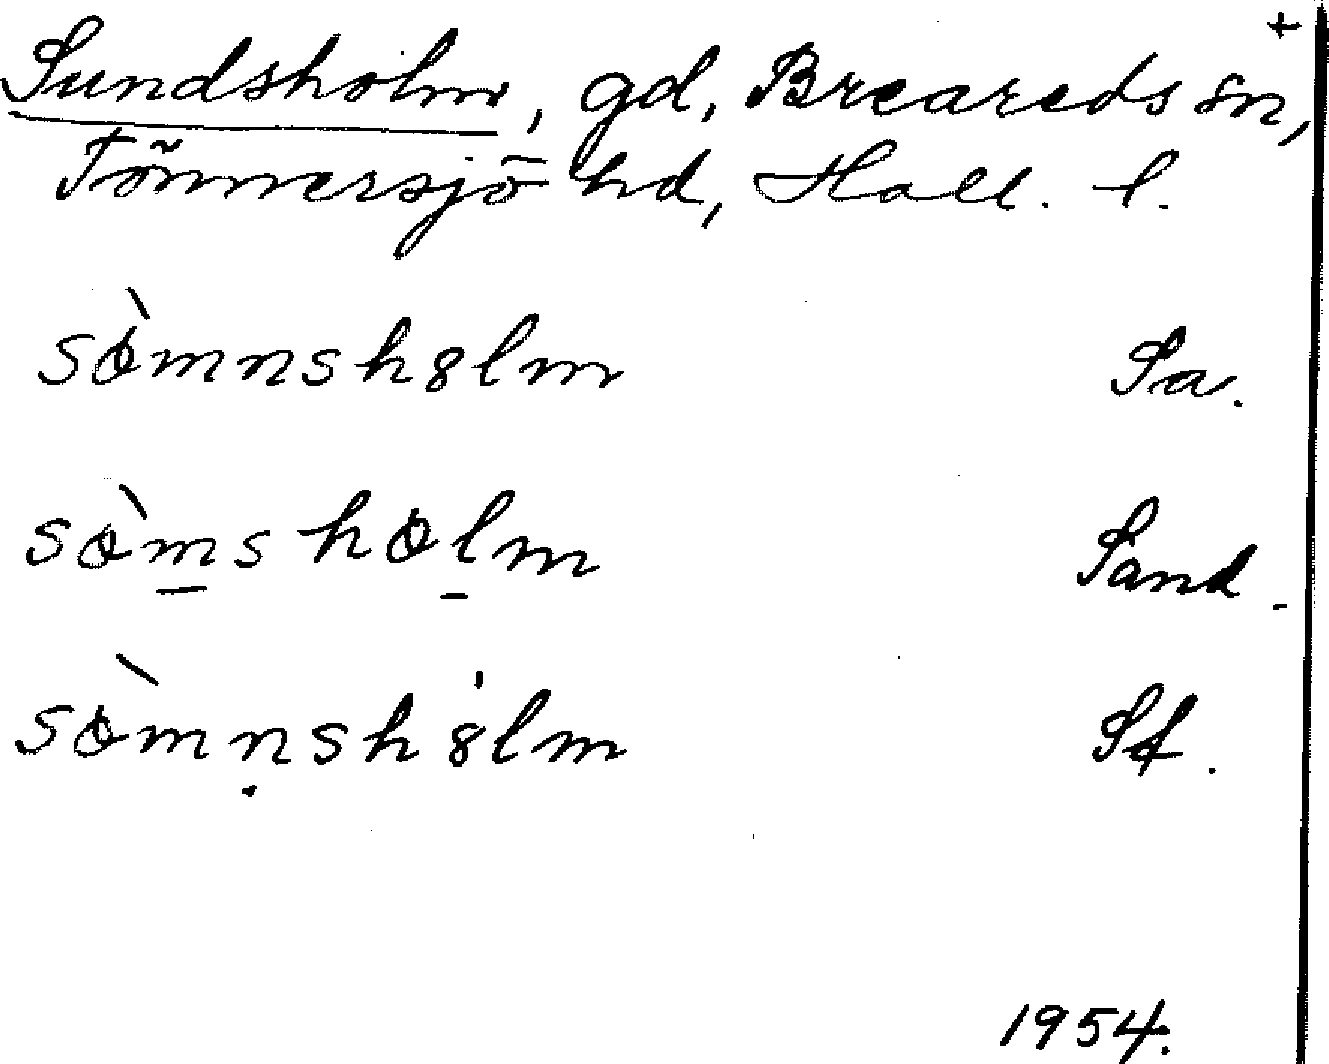 +
Sundsholm, gd, Breareds sn,
Tönnersjö hd, Hall. l.
sòmnsh8lm Sa.
sòmsholm Sand.
sòmṇsh8lm Sf.
1954.